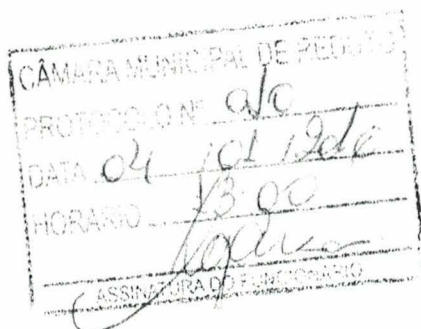 CÂMARA MUNICIPAL DE REDUTO
PROTOCOLO Nº
DATA 04 / 01 /
HORÁRIO 13:00
ASSINATURA DO FUNCIONÁRIO